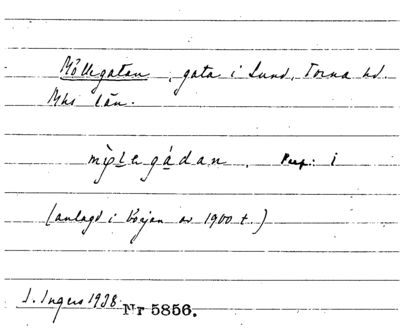 Möllegatan, gata i Lund, Torna hd.
Mhs län.
Prep: i
(anlagd i början av 1900 t.)
I. Ingers 1938. Nr 5856.